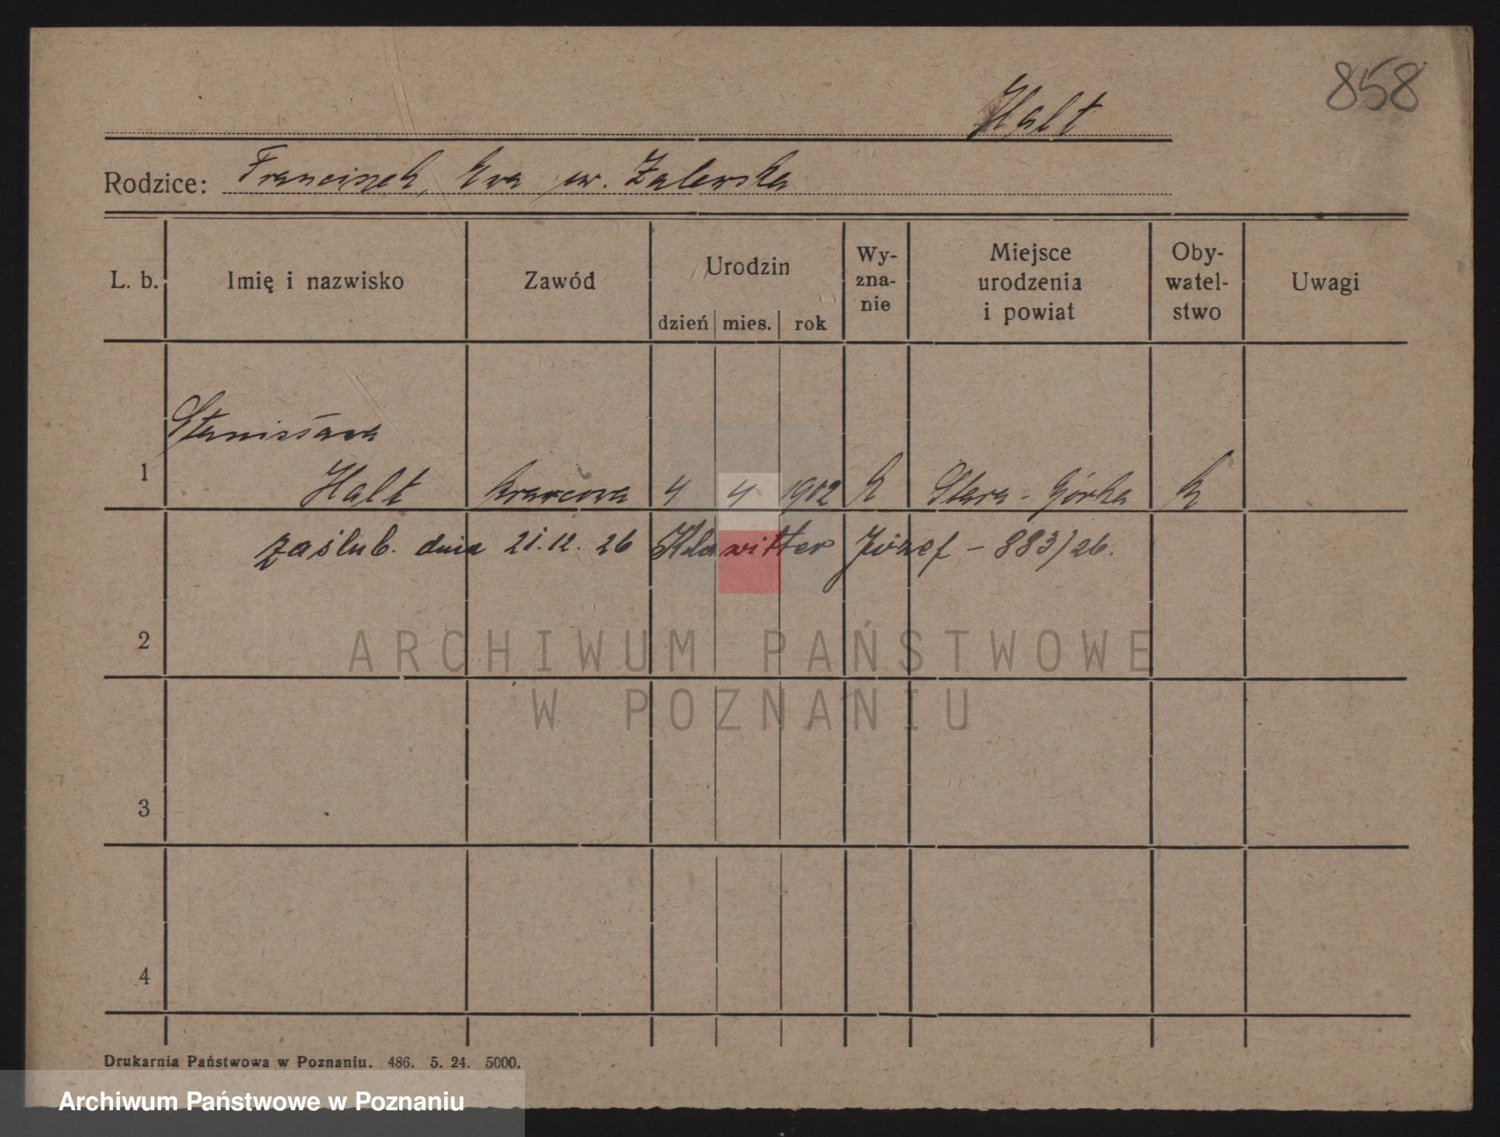 858
Halt
Rodzice: Franciszek, Ewa ur. Zalewska
L. b. Imię i nazwisko Zawód Urodzin Wy-zna-nie Miejsce urodzenia i powiat Oby-watel-stwo Uwagi
dzień mies. rok
Stanisława
1 Halt krawcowa 4 4 1902 k Stara-Górka
zaślub. dnia 21.12.26 Klawitter Józef - 883/26.
2
ARCHIWUM PAŃSTWOWE
W POZNANIU
3
4
Drukarnia Państwowa w Poznaniu. 486. 5. 24. 5000.
Archiwum Państwowe w Poznaniu